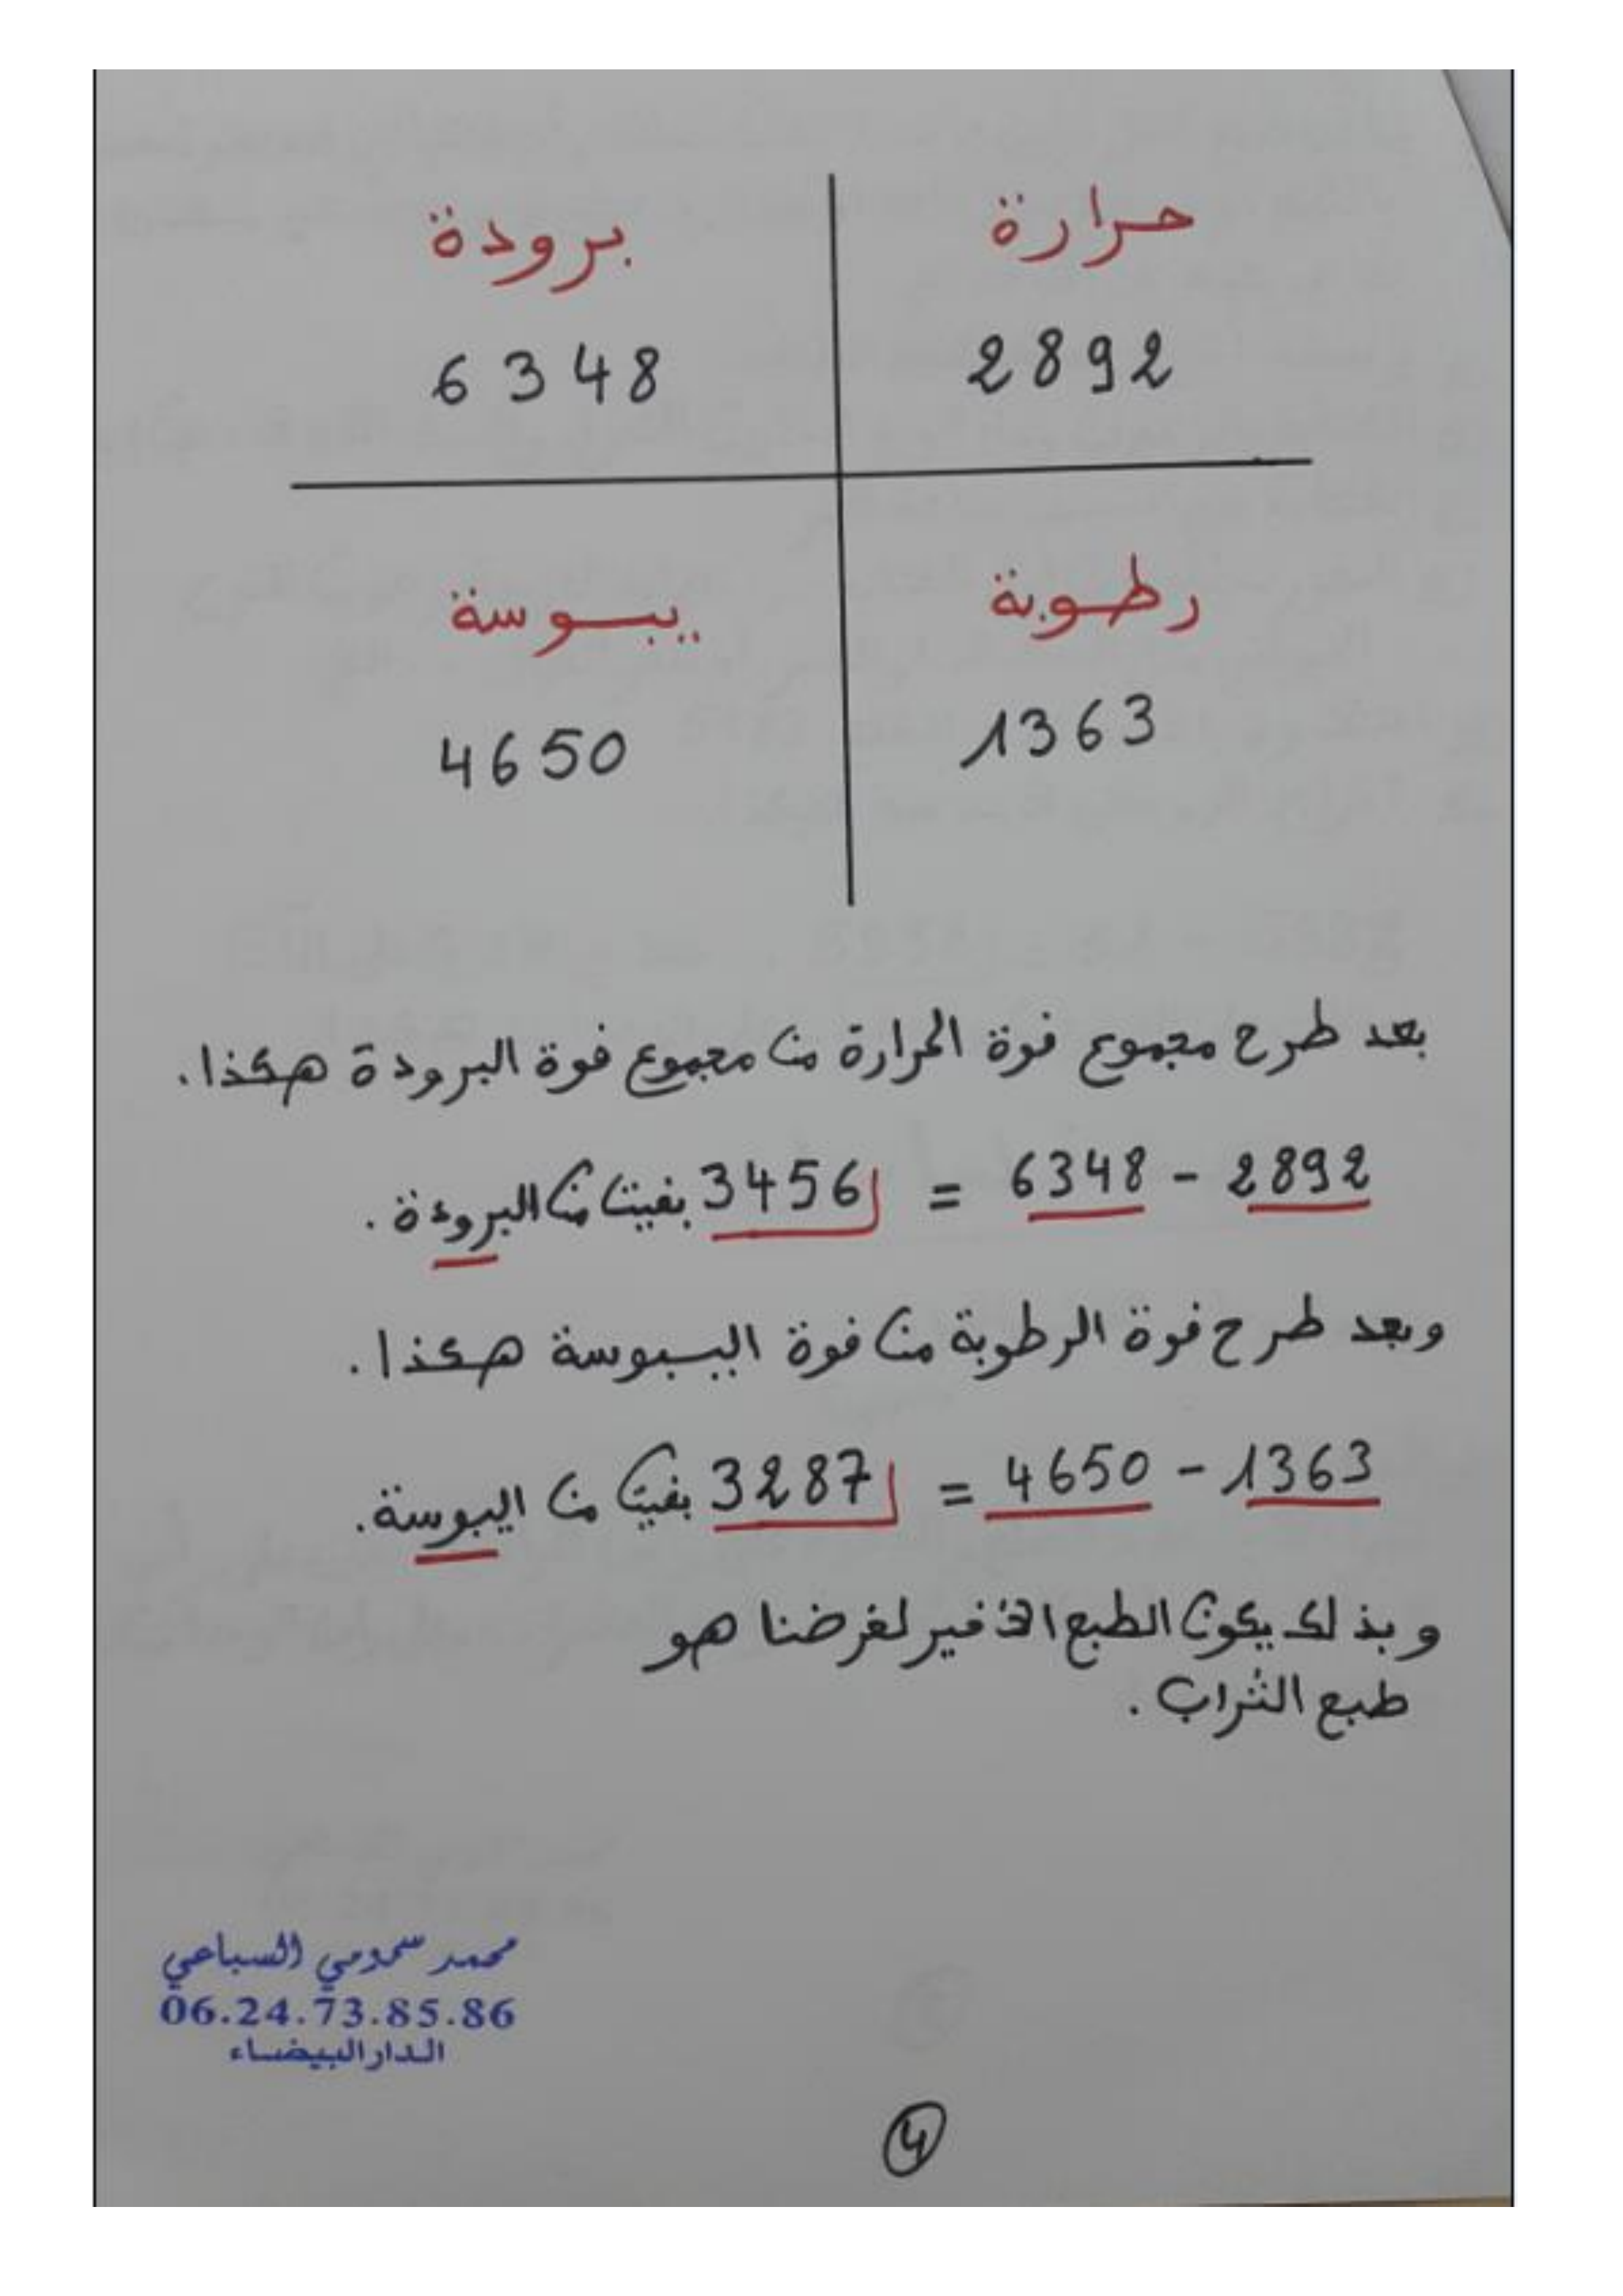 حرارة برودة
2892 6348
رطوبة يبوسة
1363 4650
بعد طرح مجموع فوة الحرارة من مجموع فوة البرودة هكذا.
6348 - 2892 = 3456 بفيت من البرودة.
وبعد طرح فوة الرطوبة من فوة اليبوسة هكذا.
4650 - 1363 = 3287 بفيت من اليبوسة.
وبذلك يكون الطبع الأخير لغرضنا هو
طبع التراب.
محمد سحومي السباعي
06.24.73.85.86
الدار البيضاء
4